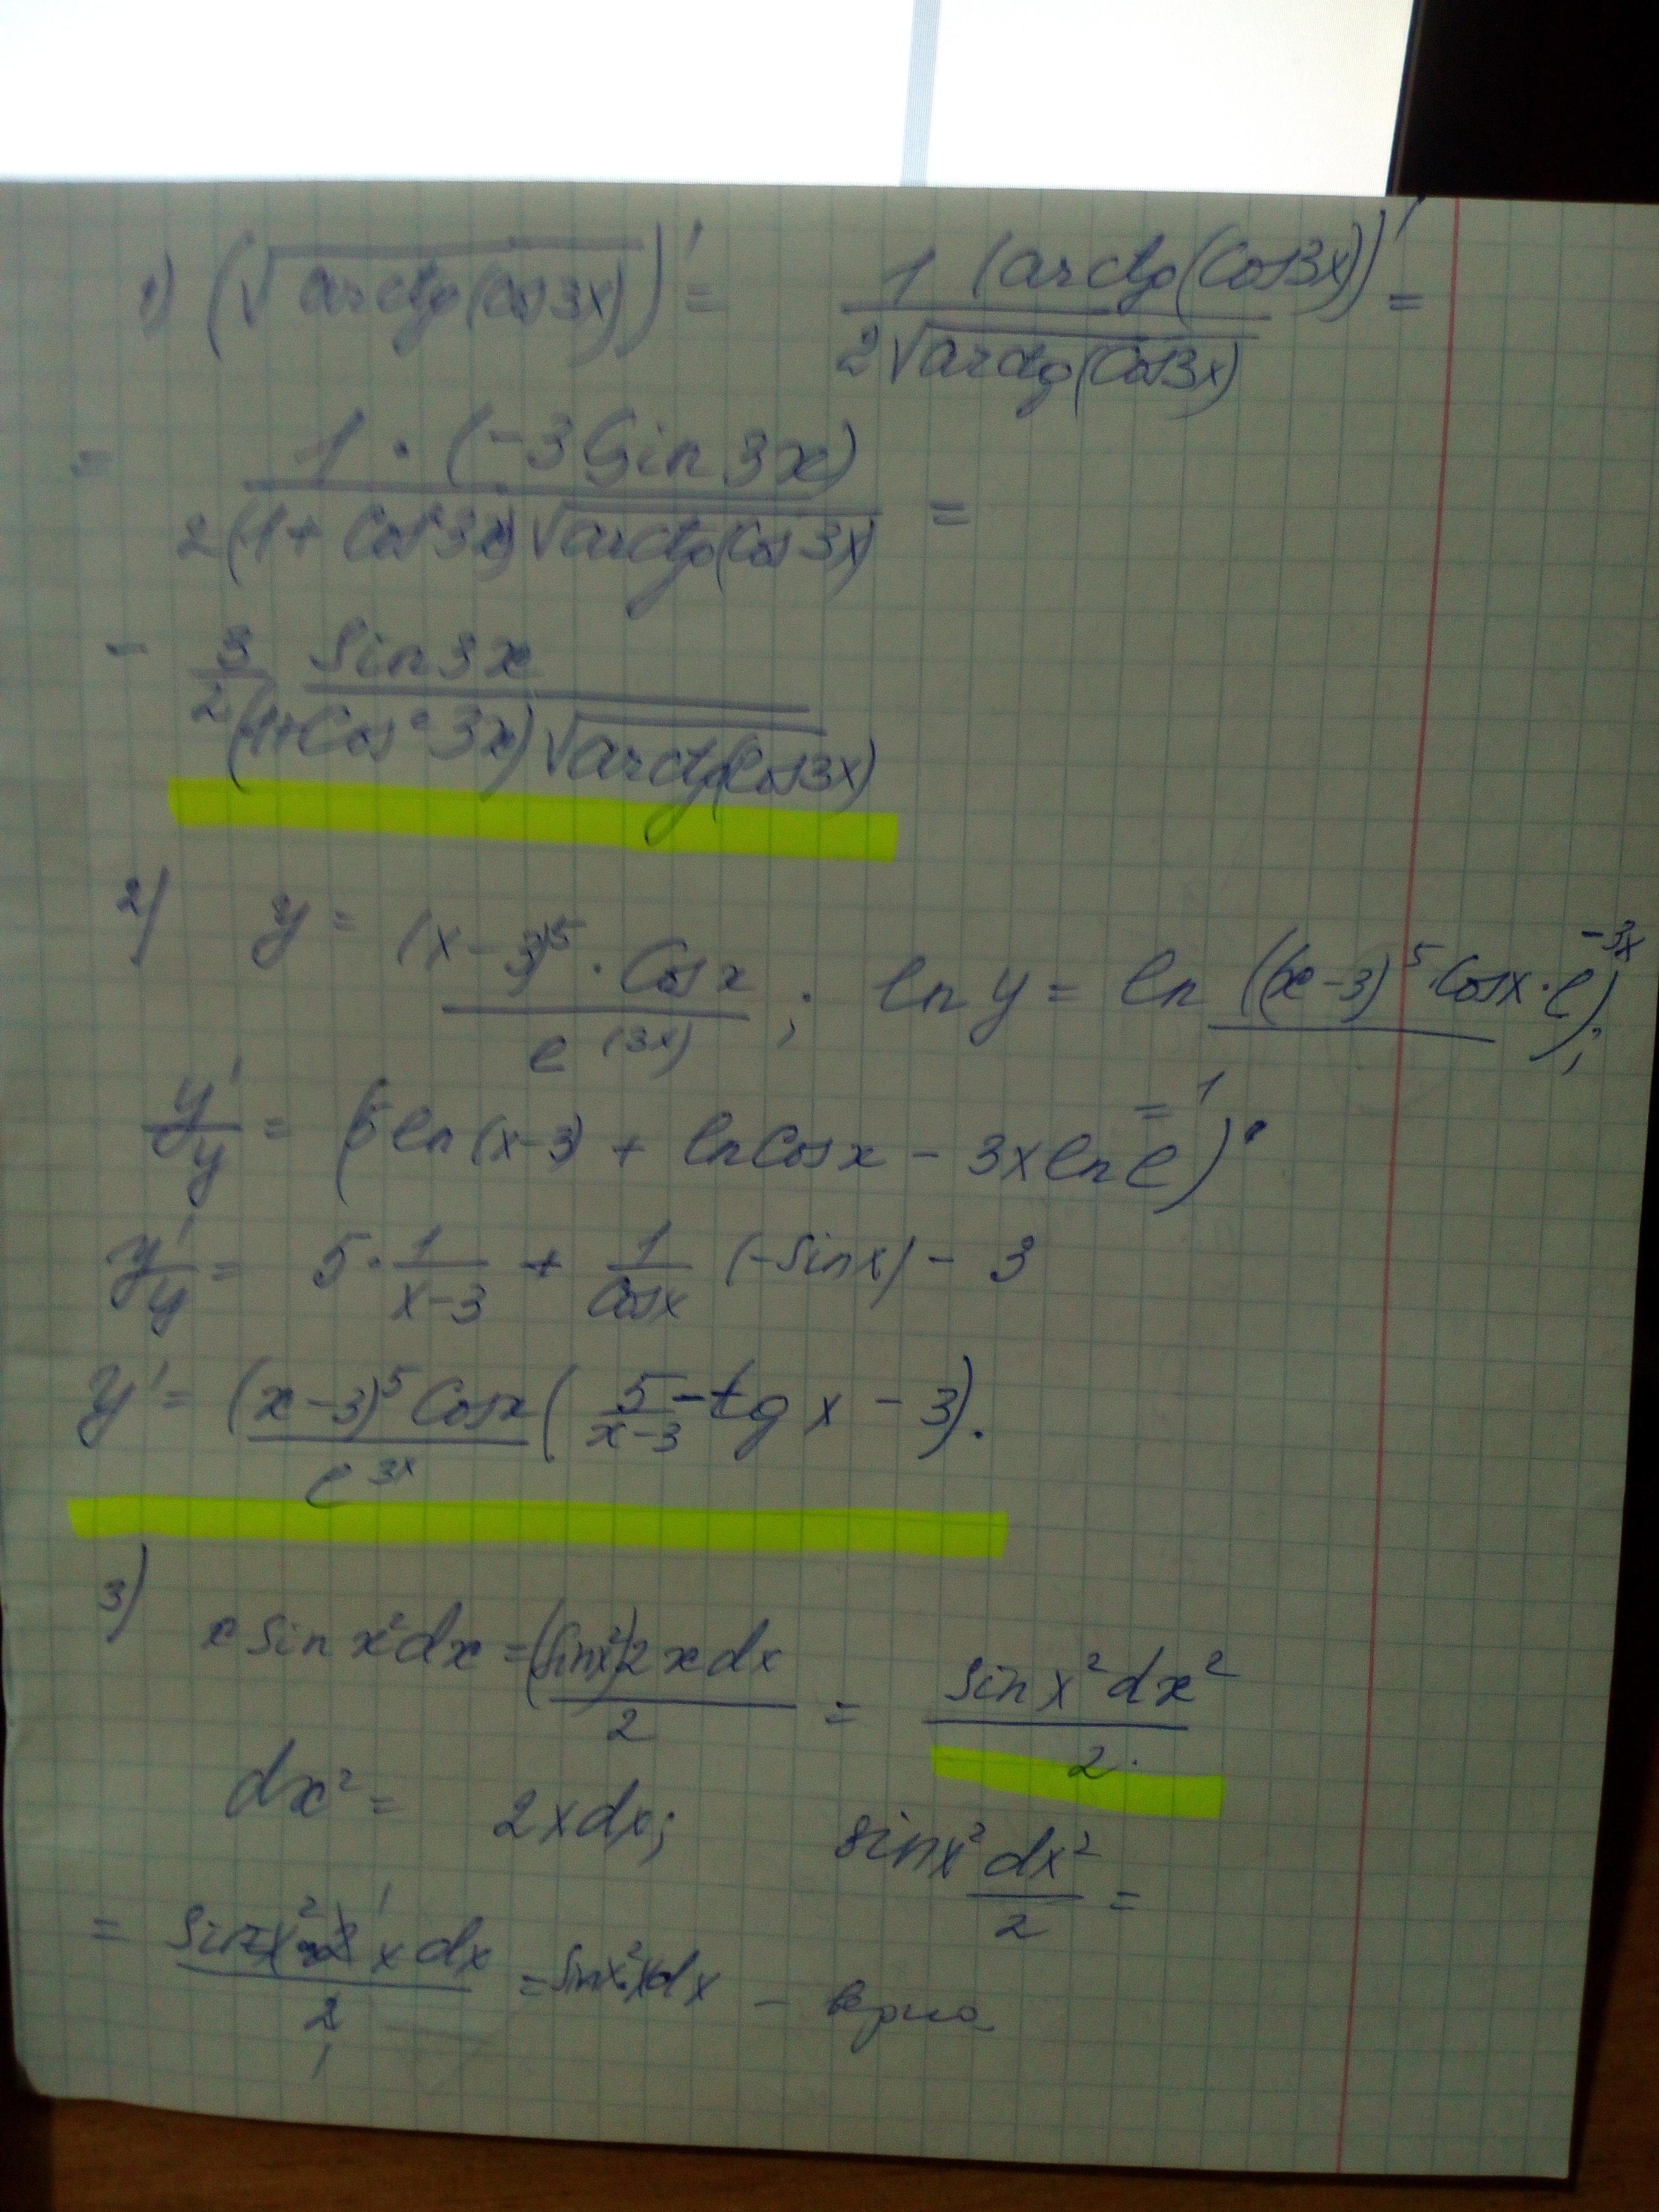 1) (√arctg(cos3x))' = 1 (arctg(Cos3x))' / 2√arctg(Cos3x) =
= 1 · (-3Sin3x) / 2(1+Cos²3x)√arctg(Cos3x) =
- 3/2 Sin3x / (1+Cos²3x)√arctg(Cos3x)
2) y = (x-3)⁵ · Cosx / e^(3x) ; ln y = ln ((x-3)⁵ Cosx · e^-3x);
y'/y = (5ln(x-3) + lnCosx - 3x ln e^=1)'
y'/y = 5 · 1/(x-3) + 1/Cosx (-sinx) - 3
y' = (x-3)⁵ Cosx / e^3x (5/(x-3) - tgx - 3).
3) x sin x² dx = (sinx²)2xdx / 2 = sin x² dx² / 2.
dx² = 2xdx; sinx² dx²/2 =
= sinx² 2 x dx / 2 = sinx² xdx - верно